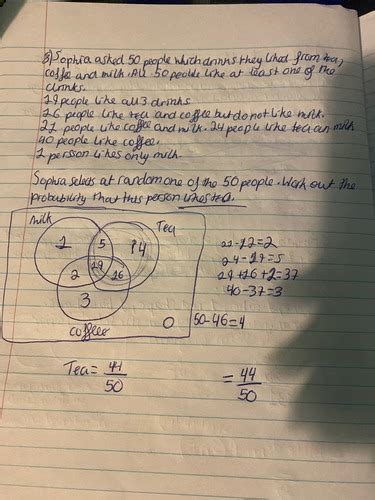 8) Sophia asked 50 people which drinks they liked from tea,
coffee and milk. All 50 people like at least one of the
drinks.
19 people like all 3 drinks
16 people like tea and coffee but do not like milk.
21 people like coffee and milk. 24 people like tea and milk
40 people like coffee.
1 person likes only milk.
Sophia selects at random one of the 50 people. Work out the
probability that this person likes tea.
milk
Tea
1
5
14
19
2
16
3
coffee
0
24-19=5
19+16+2=37
40-37=3
50-46=4
Tea = 44
50
= 44
50